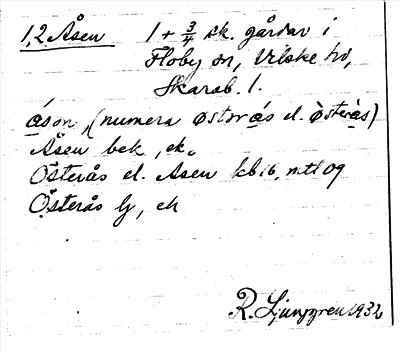 1,2 Åsen 1 + 3/4 sk. gårdar i
Floby sn, Vilske hd,
Skarab. l.
åsən, (numera østərås el. österås)
Åsen bek, ek.
Österås el. Åsen kb16, mtl 09
Österås lj, ek
R. Ljunggren 1932